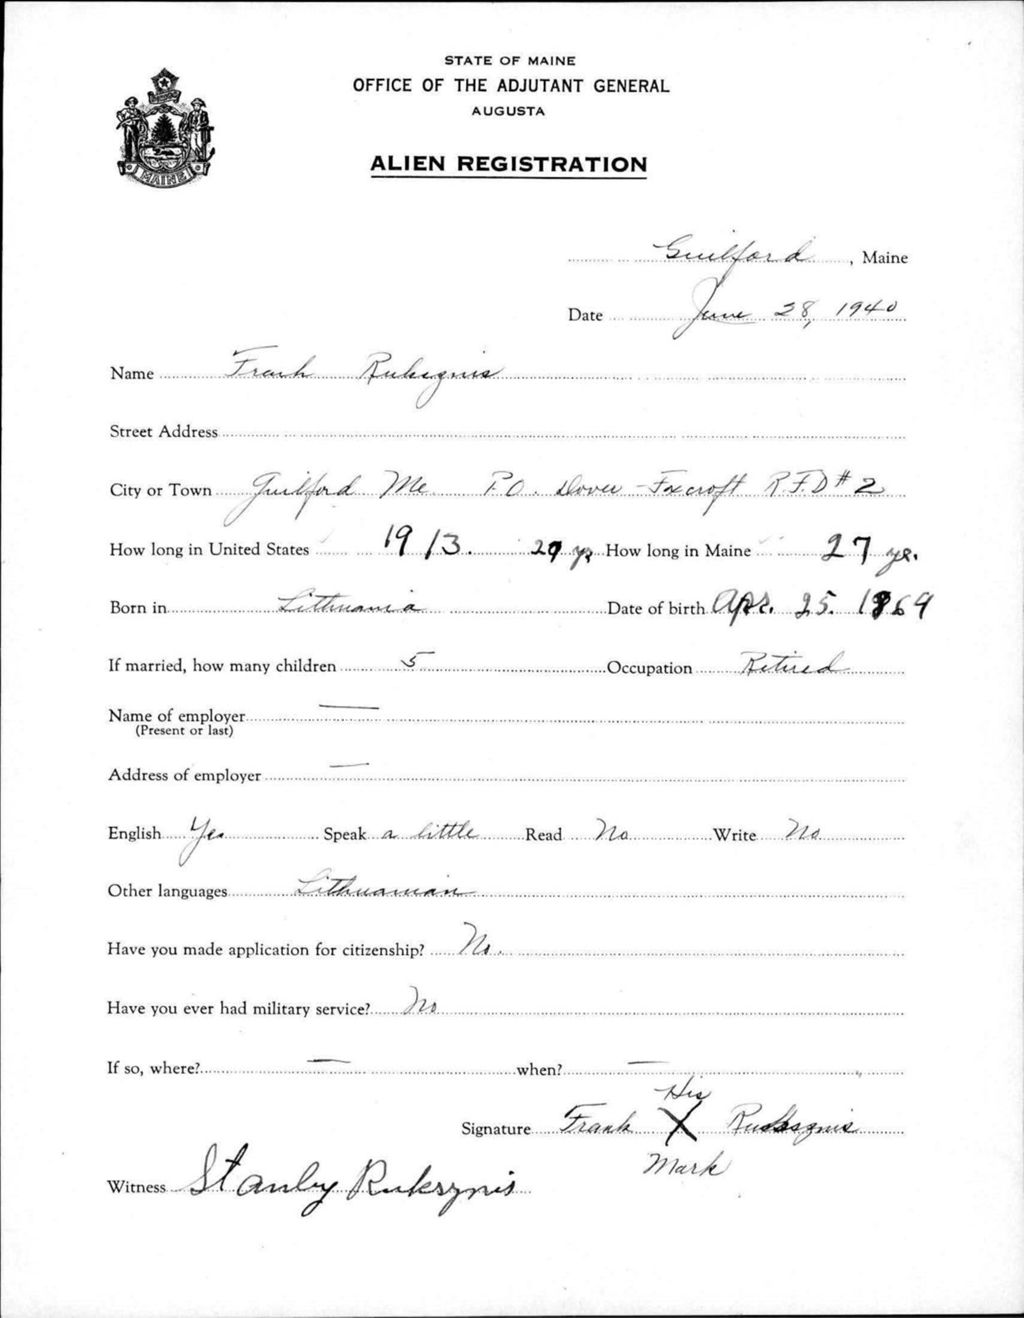 STATE OF MAINE
OFFICE OF THE ADJUTANT GENERAL
AUGUSTA
ALIEN REGISTRATION
MAINE
Guilford, Maine
Date June 28, 1940
Name Frank Ruksznis
Street Address
City or Town Guilford Me P.O. Dover-Foxcroft R.F.D #2
How long in United States 1913. 29 yr How long in Maine 27 yr.
Born in Lithuania Date of birth Apr. 25. 1869
If married, how many children 5 Occupation Retired
Name of employer —
(Present or last)
Address of employer —
English Yes Speak a little Read No Write No
Other languages Lithuanian
Have you made application for citizenship? No.
Have you ever had military service? No
If so, where? — when? —
His
Signature Frank X Ruksznis
Mark
Witness Stanley Ruksznis